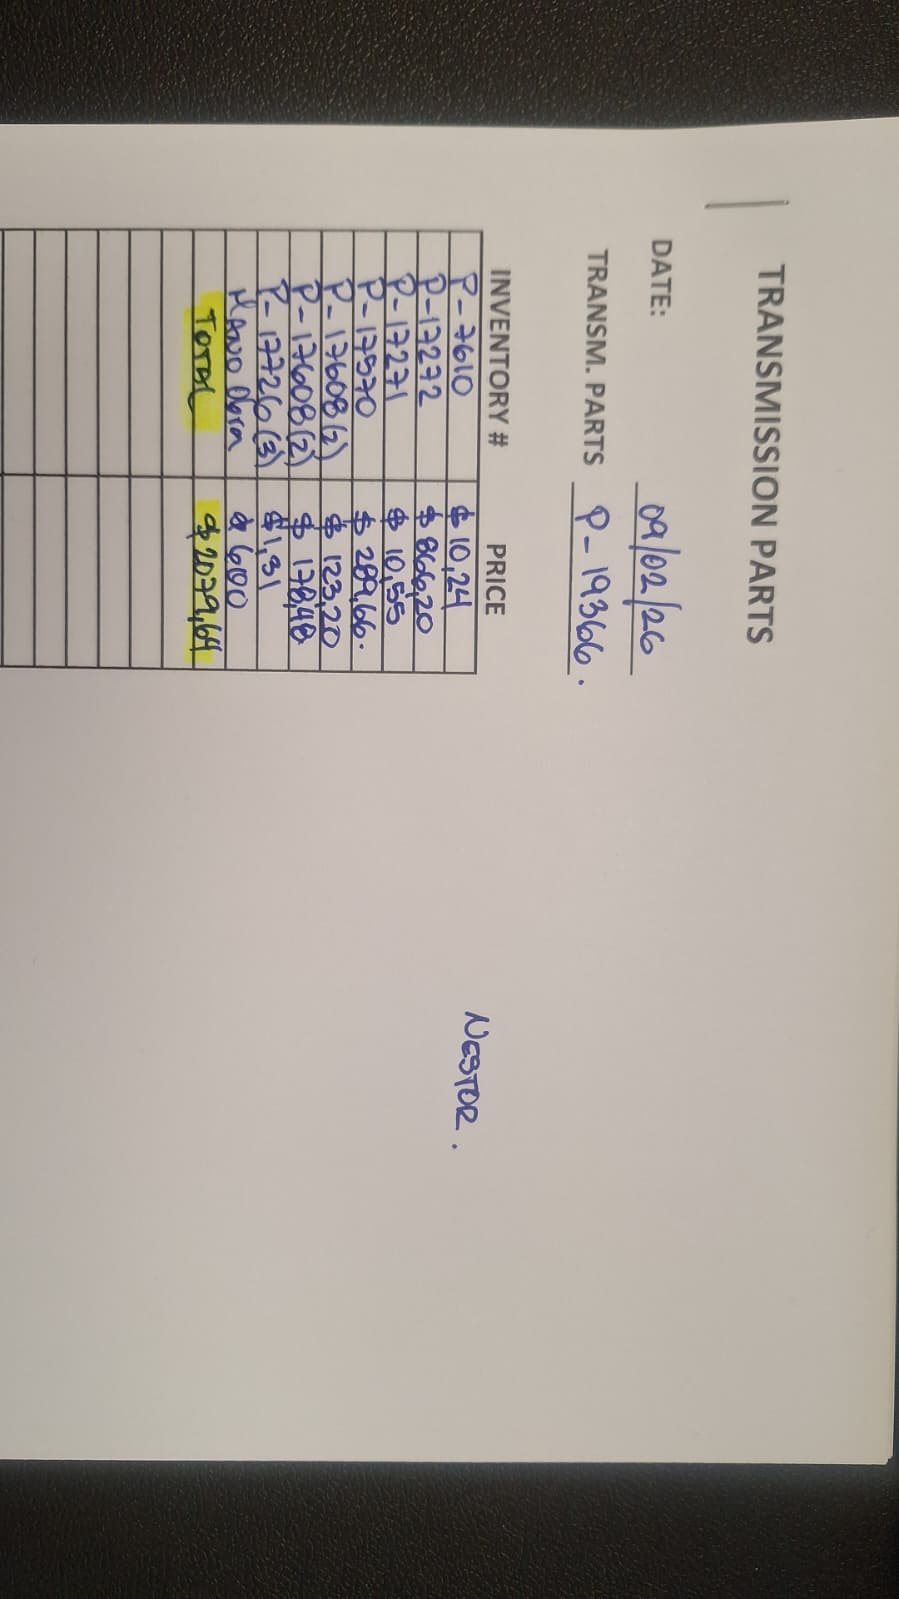 TRANSMISSION PARTS
DATE: 09/02/26
TRANSM. PARTS P-19366.
INVENTORY # PRICE
P-7610 $ 10,24
P-17272 $ 866,20
P-17271 $ 10,55
P-17570 $ 289,66.
P-17608(2) $ 123,20
P-17608(2) $ 178,48
P-17726(3) $ 1,31
Mano Obra $ 600
TOTAL $ 2079,64
NESTOR.